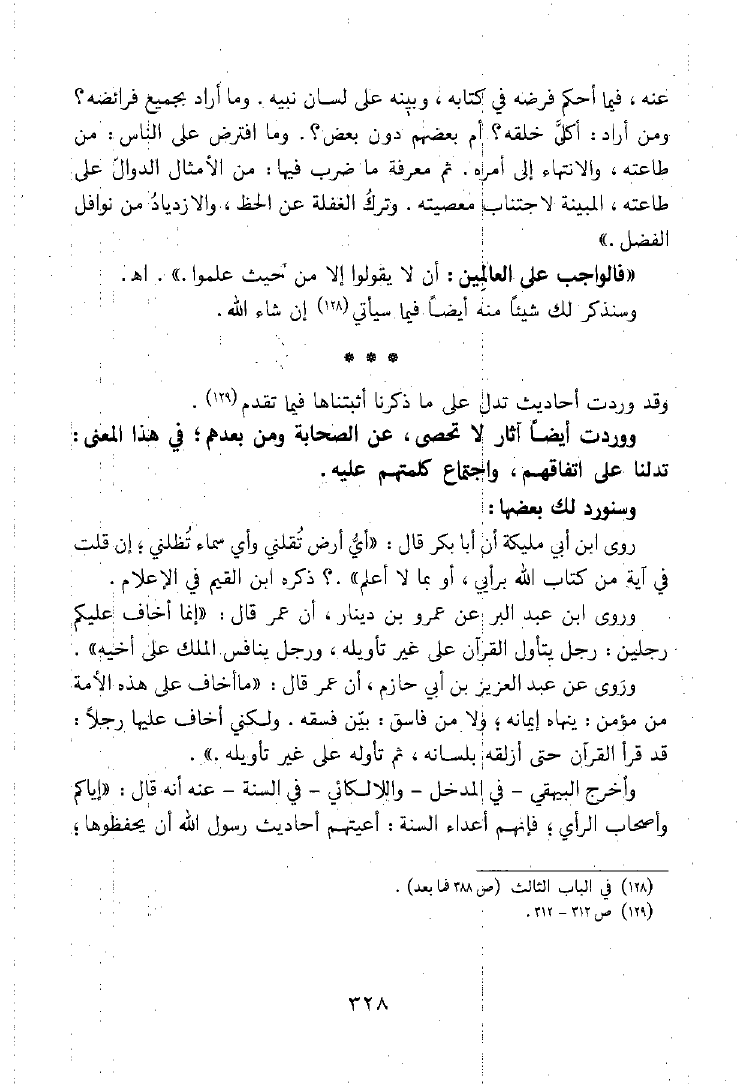 عنه ، فيما أحكم فرضه في كتابه ، وبينه على لسان نبيه . وما أراد بجميع فرائضه ؟
ومن أراد : أكلَّ خلقه ؟ أم بعضهم دون بعض ؟ . وما افترض على الناس : من
طاعته ، والانتهاء إلى أمره . ثم معرفة ما ضرب فيها : من الأمثال الدوالّ على
طاعته ، المبينة لاجتناب معصيته . وتركُ الغفلة عن الحظ ، والازديادُ من نوافل
الفضل .»
«فالواجب على العالِمين : أن لا يقولوا إلا من حيث علموا .» . اهـ .
وسنذكر لك شيئاً منه أيضاً فيما سيأتي (١٢٨) إن شاء الله .
* * *
وقد وردت أحاديث تدل على ما ذكرنا أثبتناها فيما تقدم (١٢٩) .
ووردت أيضاً آثار لا تحصى ، عن الصحابة ومن بعدهم ؛ في هذا المعنى :
تدلنا على اتفاقهم ، واجتماع كلمتهم عليه .
وسنورد لك بعضها :
روى ابن أبي مليكة أن أبا بكر قال : «أيُّ أرض تُقلني وأي سماء تُظلني ؛ إن قلت
في آية من كتاب الله برأيي ، أو بما لا أعلم» .؟ ذكره ابن القيم في الإعلام .
وروى ابن عبد البر عن عمرو بن دينار ، أن عمر قال : «إنما أخاف عليكم
رجلين : رجل يتأول القرآن على غير تأويله ، ورجل ينافس الملك على أخيه» .
ورَوى عن عبد العزيز بن أبي حازم ، أن عمر قال : «ماأخاف على هذه الأمة
من مؤمن : ينهاه إيمانه ؛ ولا من فاسق : بيّن فسقه . ولكني أخاف عليها رجلاً :
قد قرأ القرآن حتى أزلقه بلسانه ، ثم تأوله على غير تأويله .» .
وأخرج البيهقي – في المدخل – واللالكائي – في السنة – عنه أنه قال : «إياكم
وأصحاب الرأي ؛ فإنهم أعداء السنة : أعيتهم أحاديث رسول الله أن يحفظوها ؛
(١٢٨) في الباب الثالث (ص ٣٨٨ فما بعد) .
(١٢٩) ص ٣١٢ – ٣١٢ .
٣٢٨